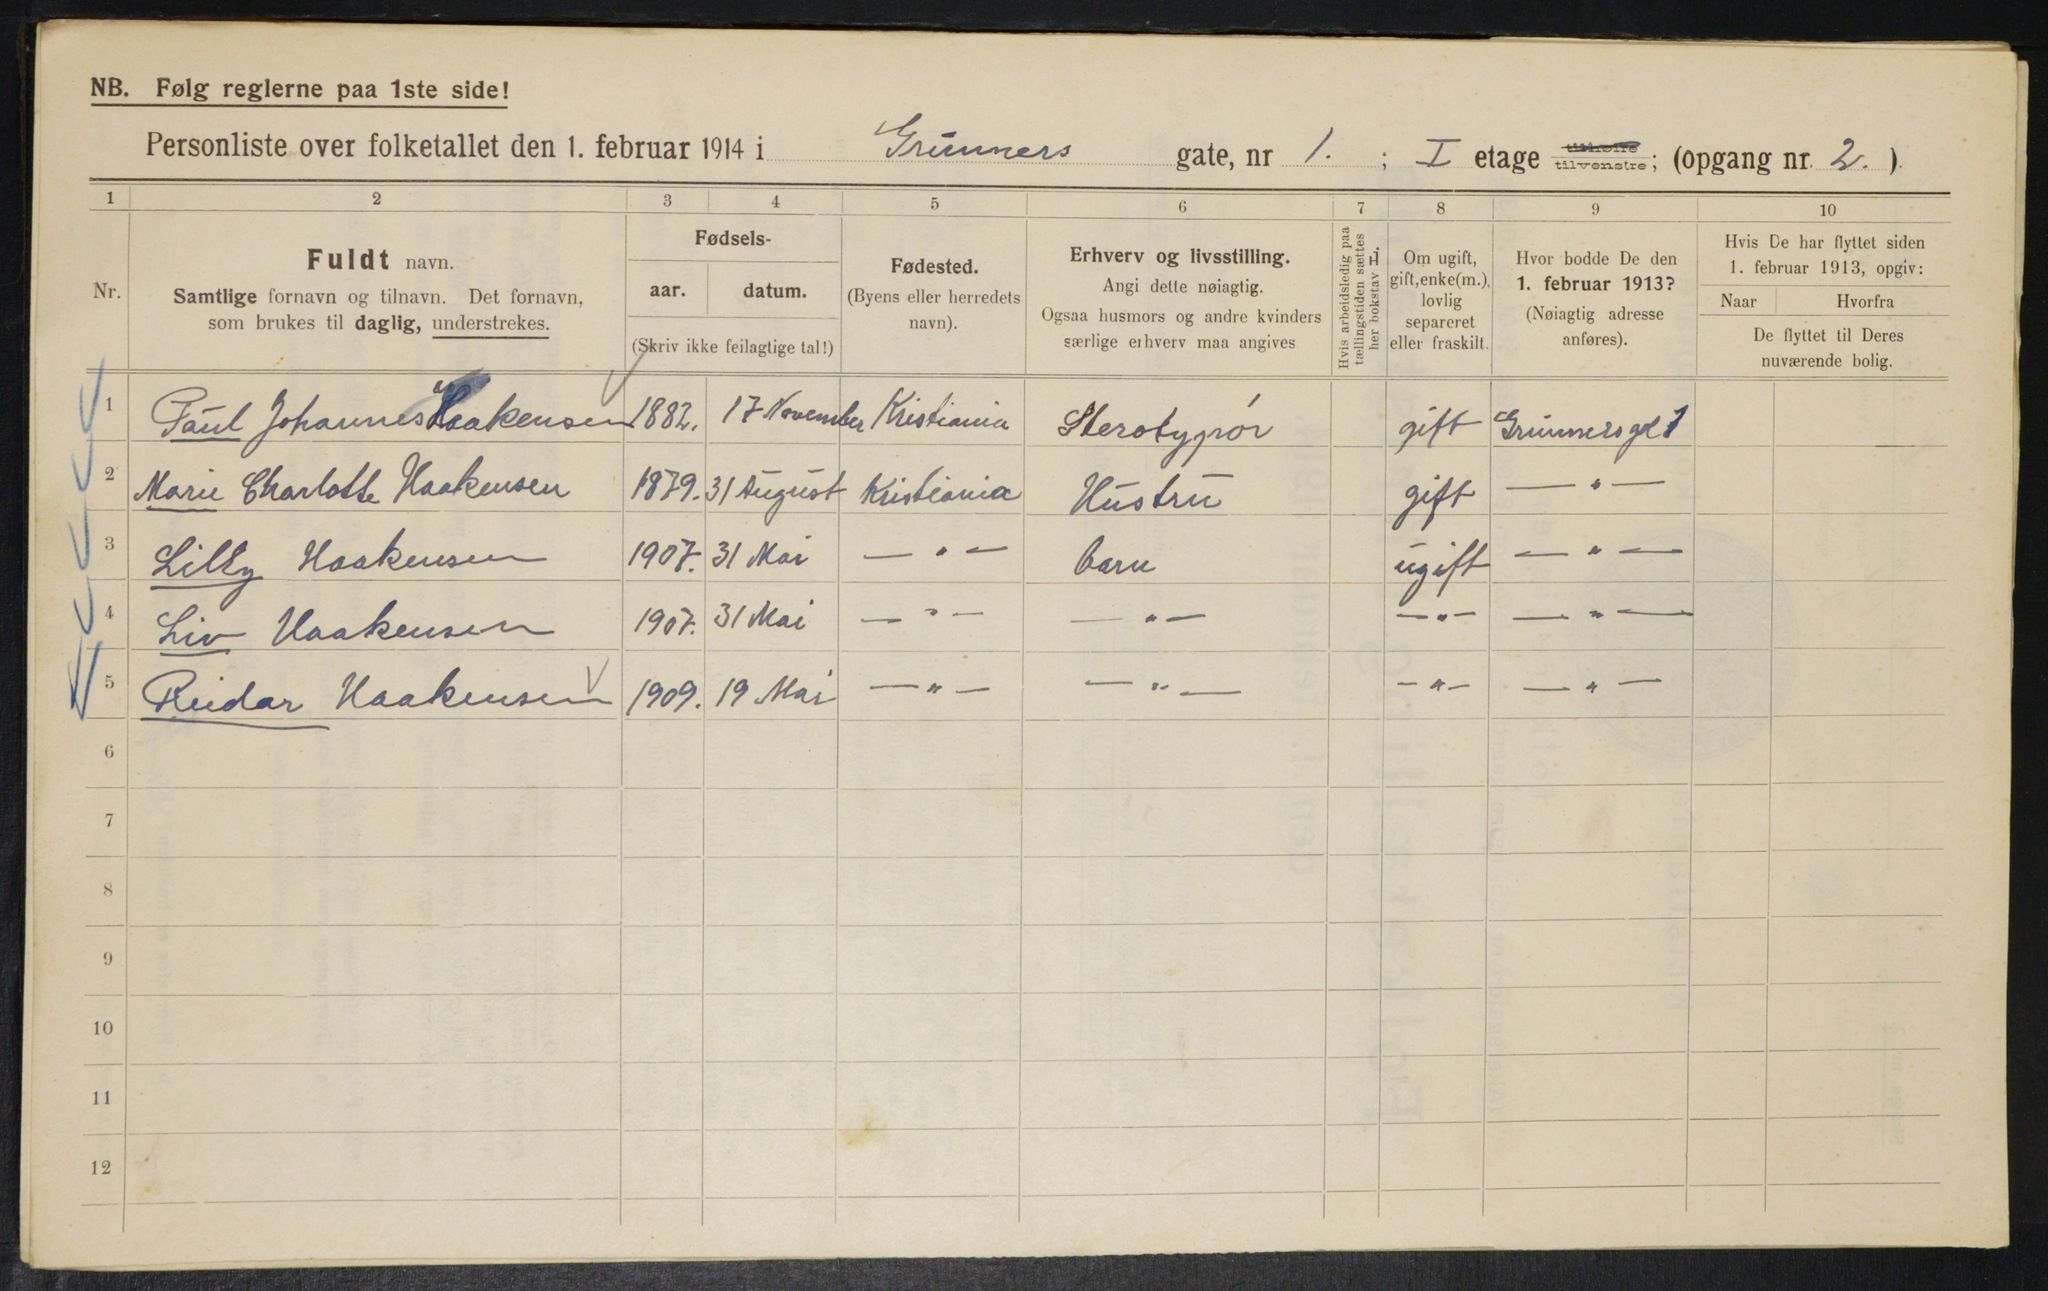 NB. Følg reglerne paa 1ste side!
Personliste over folketallet den 1. februar 1914 i Grünners gate, nr 1. ; I etage tilhøire tilvenstre; (opgang nr. 2. ).
1 2 3 4 5 6 7 8 9 10
Nr.
Fuldt navn.
Samtlige fornavn og tilnavn. Det fornavn,
som brukes til daglig, understrekes.
Fødsels-
aar. datum.
(Skriv ikke feilagtige tal!)
Fødested.
(Byens eller herredets
navn).
Erhverv og livsstilling.
Angi dette nøiagtig.
Ogsaa husmors og andre kvinders
særlige erhverv maa angives
Hvis arbeidsledig paa
tællingstiden sættes
her bokstav L.
Om ugift,
gift, enke(m.),
lovlig
separeret
eller fraskilt.
Hvor bodde De den
1. februar 1913?
(Nøiagtig adresse
anføres).
Hvis De har flyttet siden
1. februar 1913, opgiv:
Naar Hvorfra
De flyttet til Deres
nuværende bolig.
1 Paul Johannes Haakensen 1882. 17 November Kristiania Sterotypør gift Grünnersgt 1
2 Marie Charlotte Haakensen 1879. 31 August Kristiania Hustru gift — " —
3 Lilly Haakensen 1907. 31 Mai — " — barn ugift — " —
4 Liv Haakensen 1907. 31 Mai — " — — " — — " — — " —
5 Reidar Haakensen 1909. 19 Mai — " — — " — — " — — " —
6
7
8
9
10
11
12